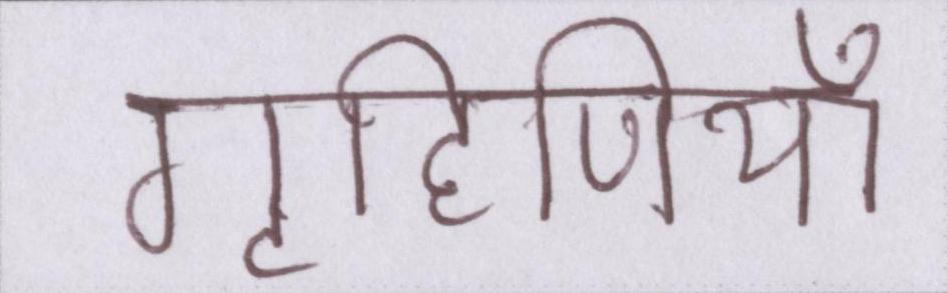 गृहिणियाँ